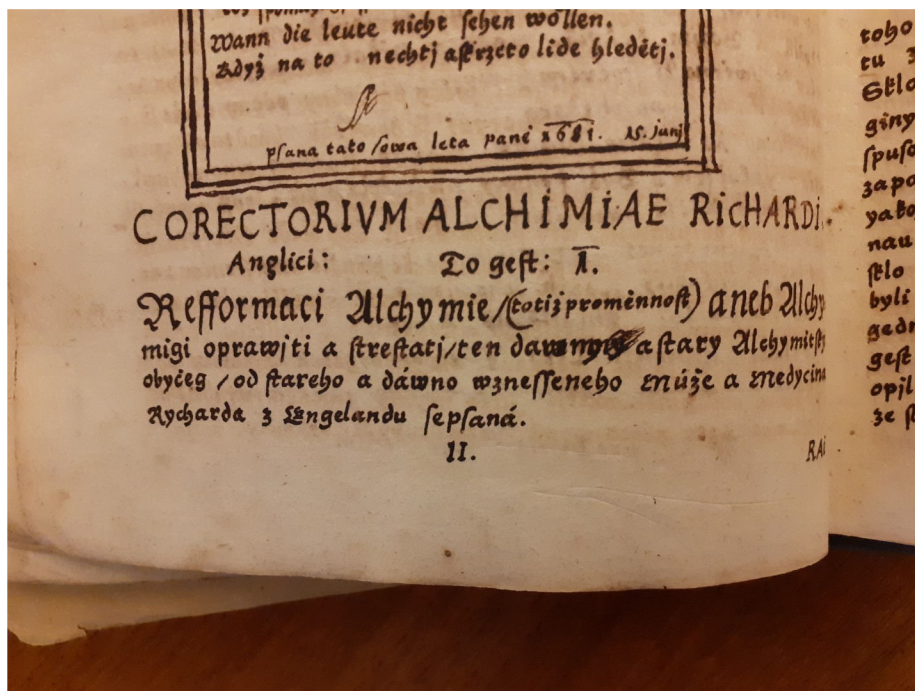 Wann die leute nicht sehen wöllen.
Kdyż na to nechtj a strzcto lide hledětj.
psana tato sowa leta pani 1681. 15. junj
CORECTORIVM ALCHIMIAE RICHARDI.
Anglici: To gest: I.
Refformaci Alchymie/(totiż proměnnost) aneb Alchy
migi oprawjti a strestatj/ten a stary Alchymitsk
obyčeg/od stareho a dáwno wznesseneho Múże a Medycina
Rycharda z Engelandu sepsaná.
II.
RAi
toho
tu
Sklo
giny
spuso
zapo
yako
nau
sklo
byli
gedn
gest
opjl
że s